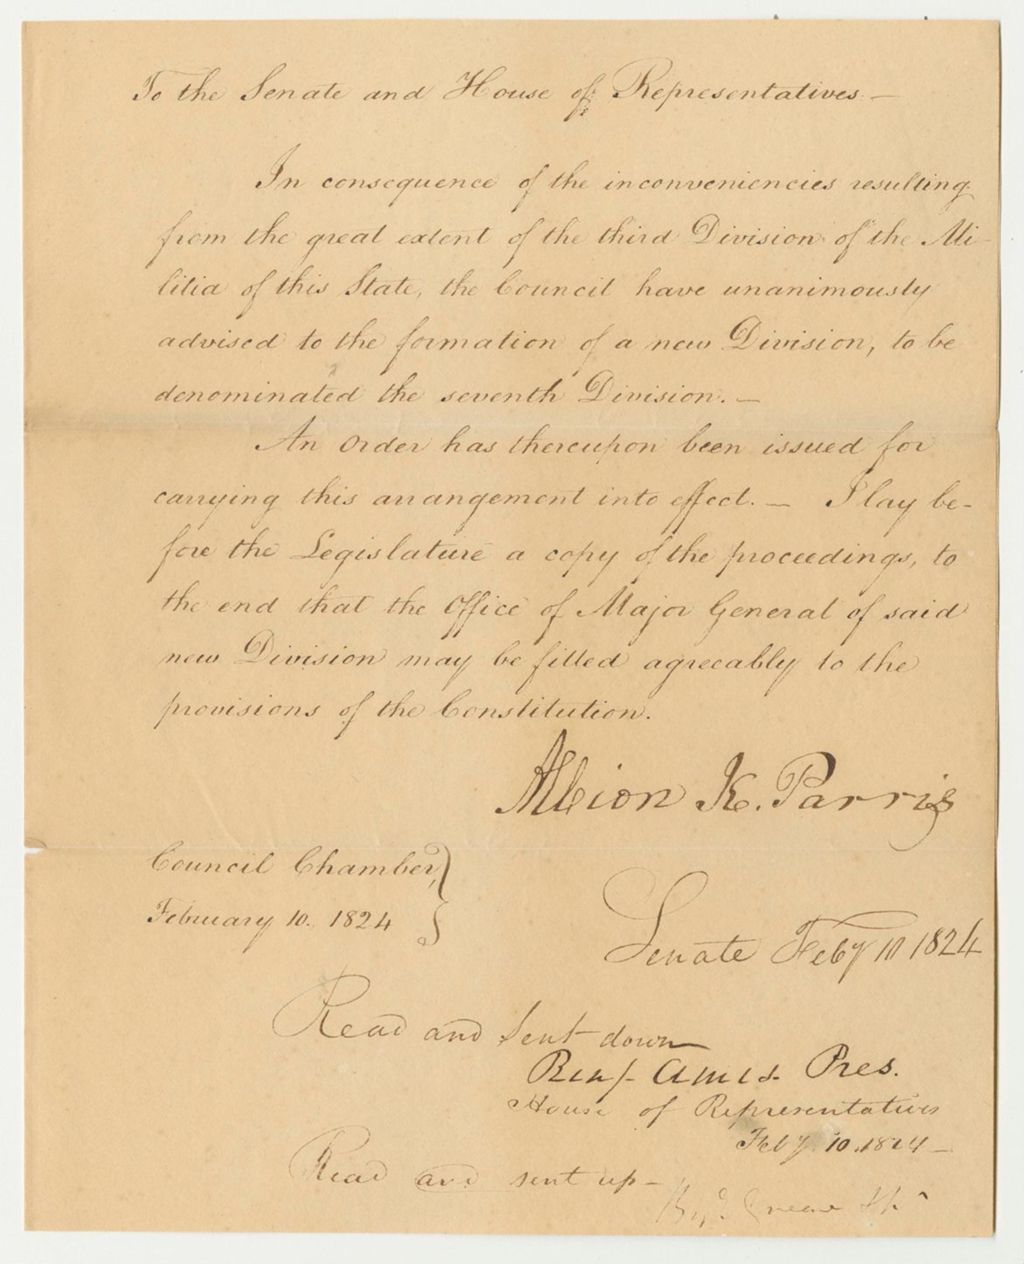 To the Senate and House of Representatives. —
In consequence of the inconveniencies resulting
from the great extent of the third Division of the Mi-
litia of this State, the Council have unanimously
advised to the formation of a new Division, to be
denominated the seventh Division. —
An Order has thereupon been issued for
carrying this arrangement into effect. — I lay be-
fore the Legislature a copy of the proceedings, to
the end that the Office of Major General of said
new Division may be filled agreeably to the
provisions of the Constitution.
Albion K. Parris
Council Chamber,
February 10. 1824
Senate Feby 10 1824
Read and sent down
Benj. Ames Pres.
House of Representatives
Feby. 10. 1824 —
Read and sent up —